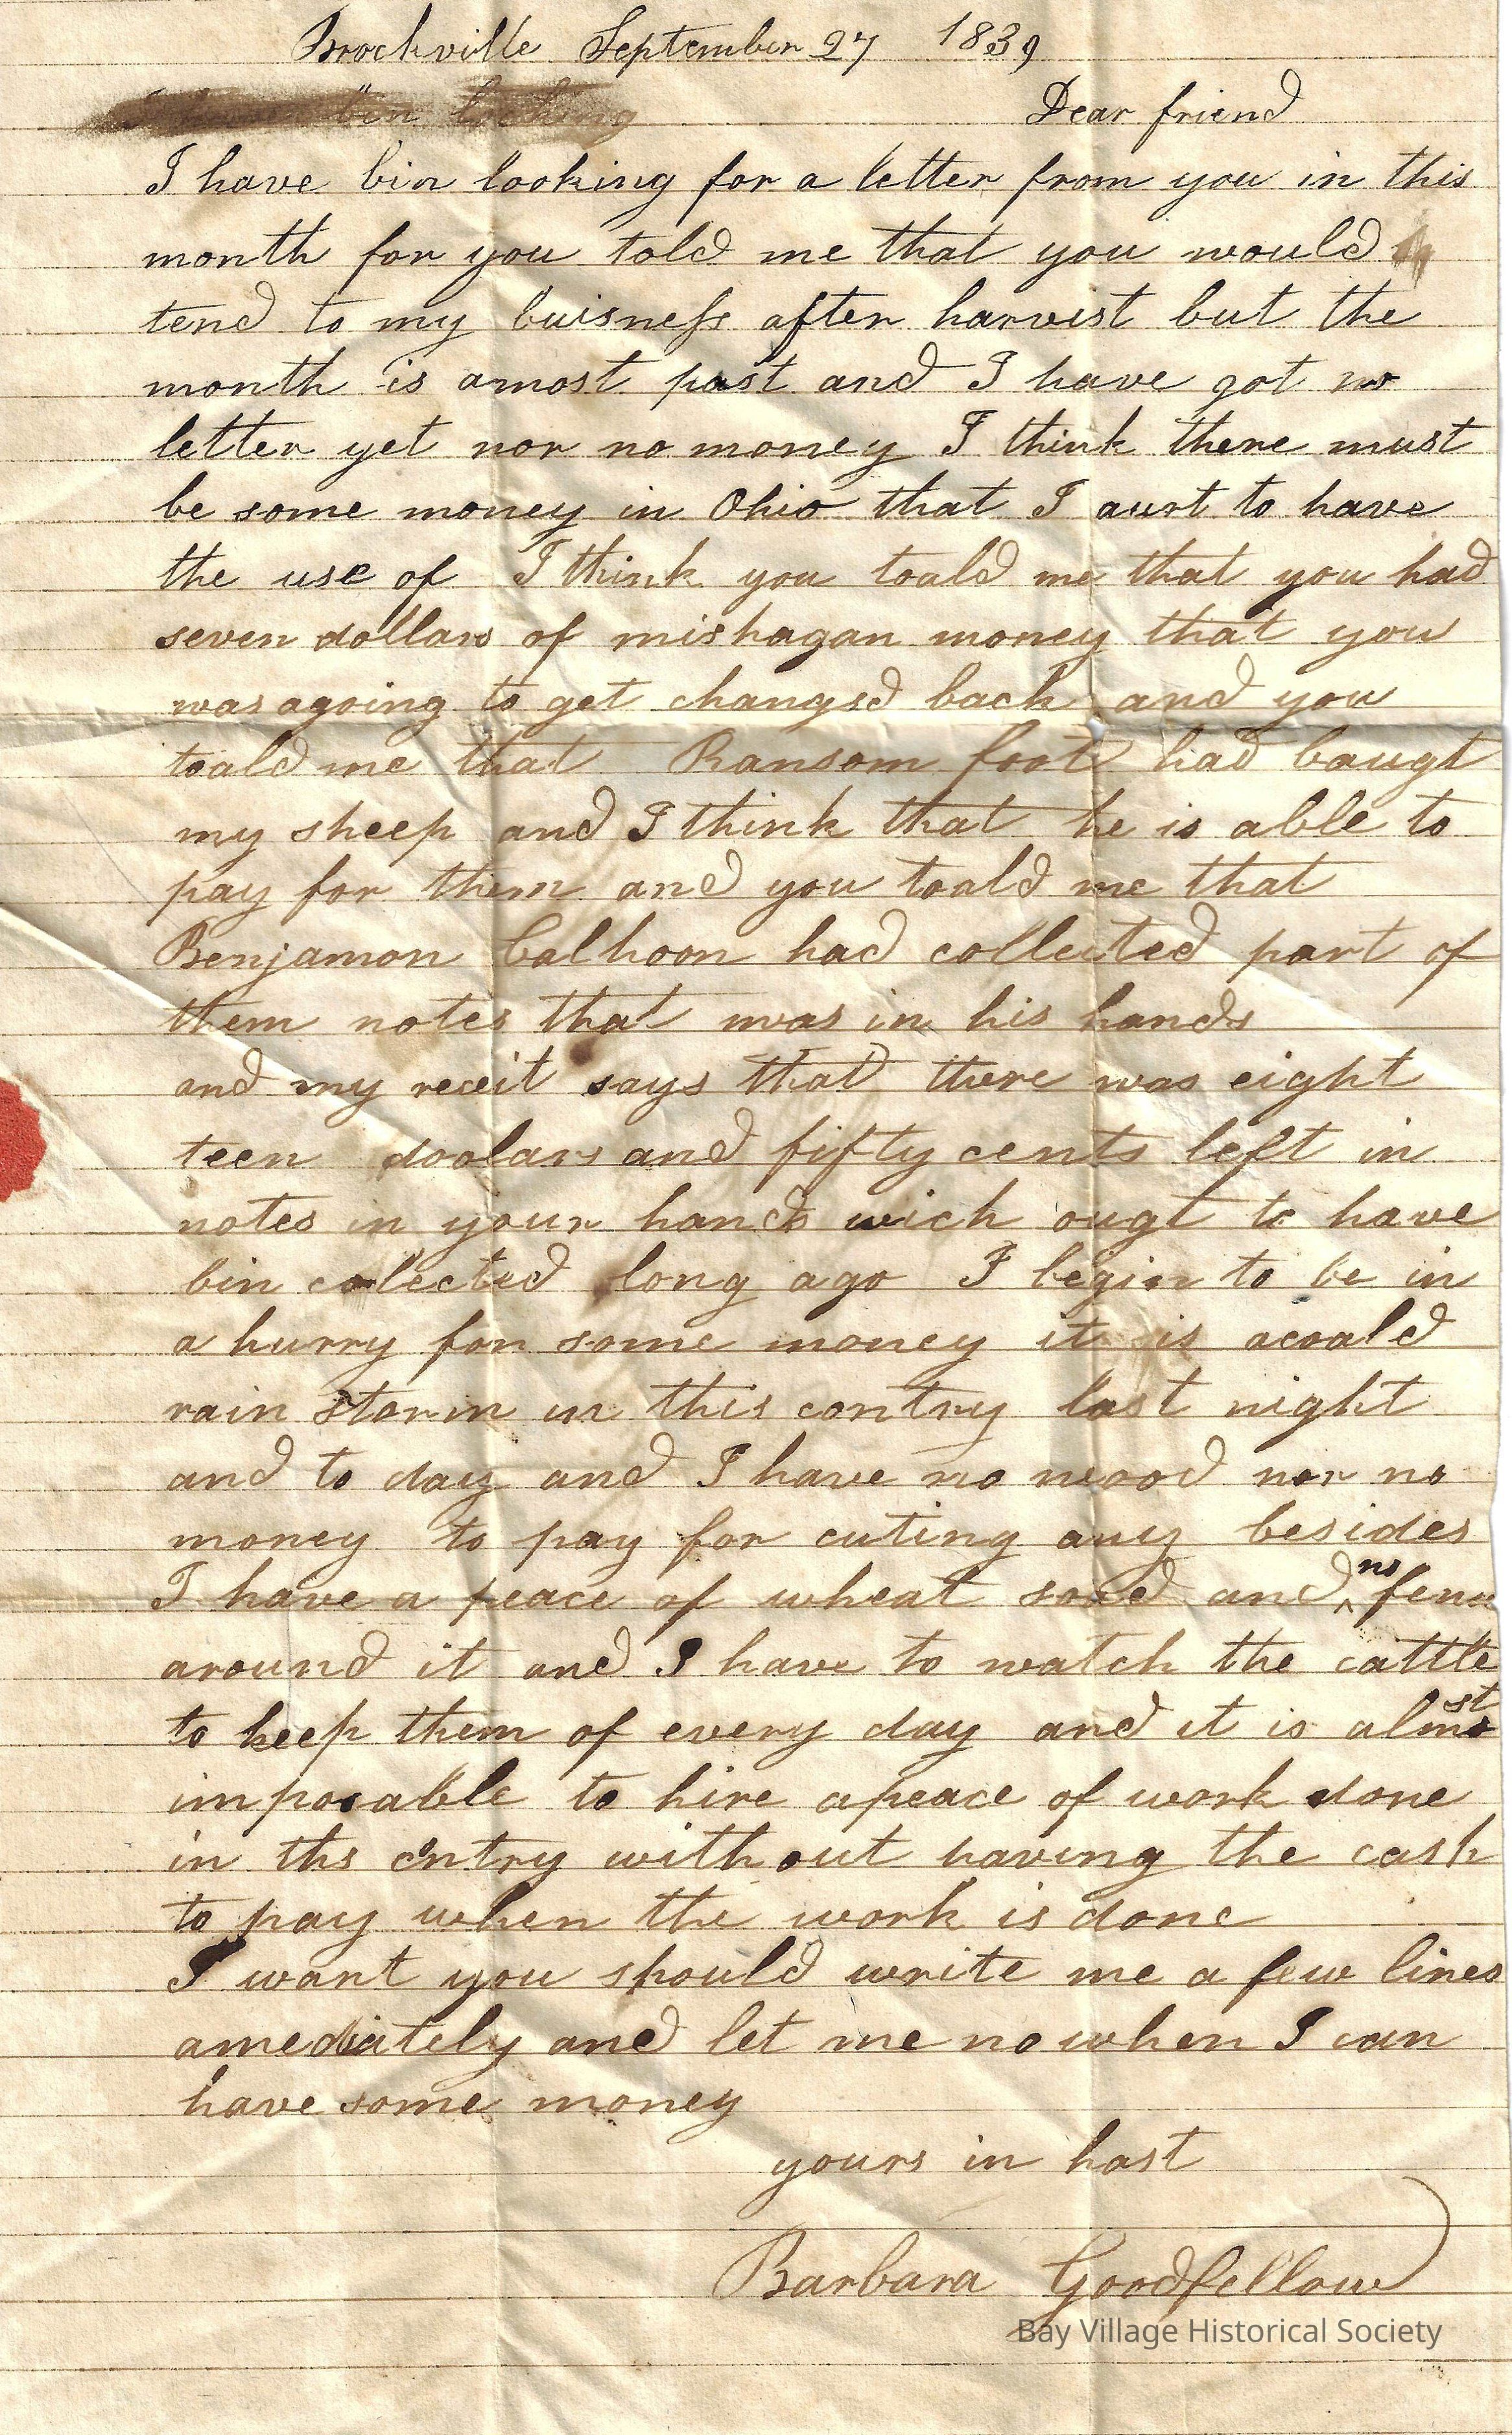 Brockville September 27 1839
I have bin looking
Dear friend
I have bin looking for a letter from you in this
month for you told me that you would
tend to my buisness after harvist but the
month is amost past and I have got no
letter yet nor no money I think there must
be some money in Ohio that I aurt to have
the use of I think you toald me that you had
seven dollars of mishagan money that you
was agoing to get changed back and you
toald me that Ransom foot had baugt
my sheep and I think that he is able to
pay for them and you toald me that
Benjamon Calhoon had collected part of
them notes that was in his hands
and my receit says that there was eight
teen doolars and fifty cents left in
notes in your hands wich ougt to have
bin colected long ago I begin to be in
a hurry for some money it is acoald
rain storm in this contry last night
and to day and I have no wood nor no
money to pay for cuting any besides
I have a peace of wheat soed and no fence
around it and I have to watch the cattle
to keep them of every day and it is almost
imposable to hire apeace of work done
in ths cntry without having the cash
to pay when the work is done
I want you should write me a few lines
amediately and let me no when I can
have some money
yours in hast
Barbara Goodfellow
Bay Village Historical Society